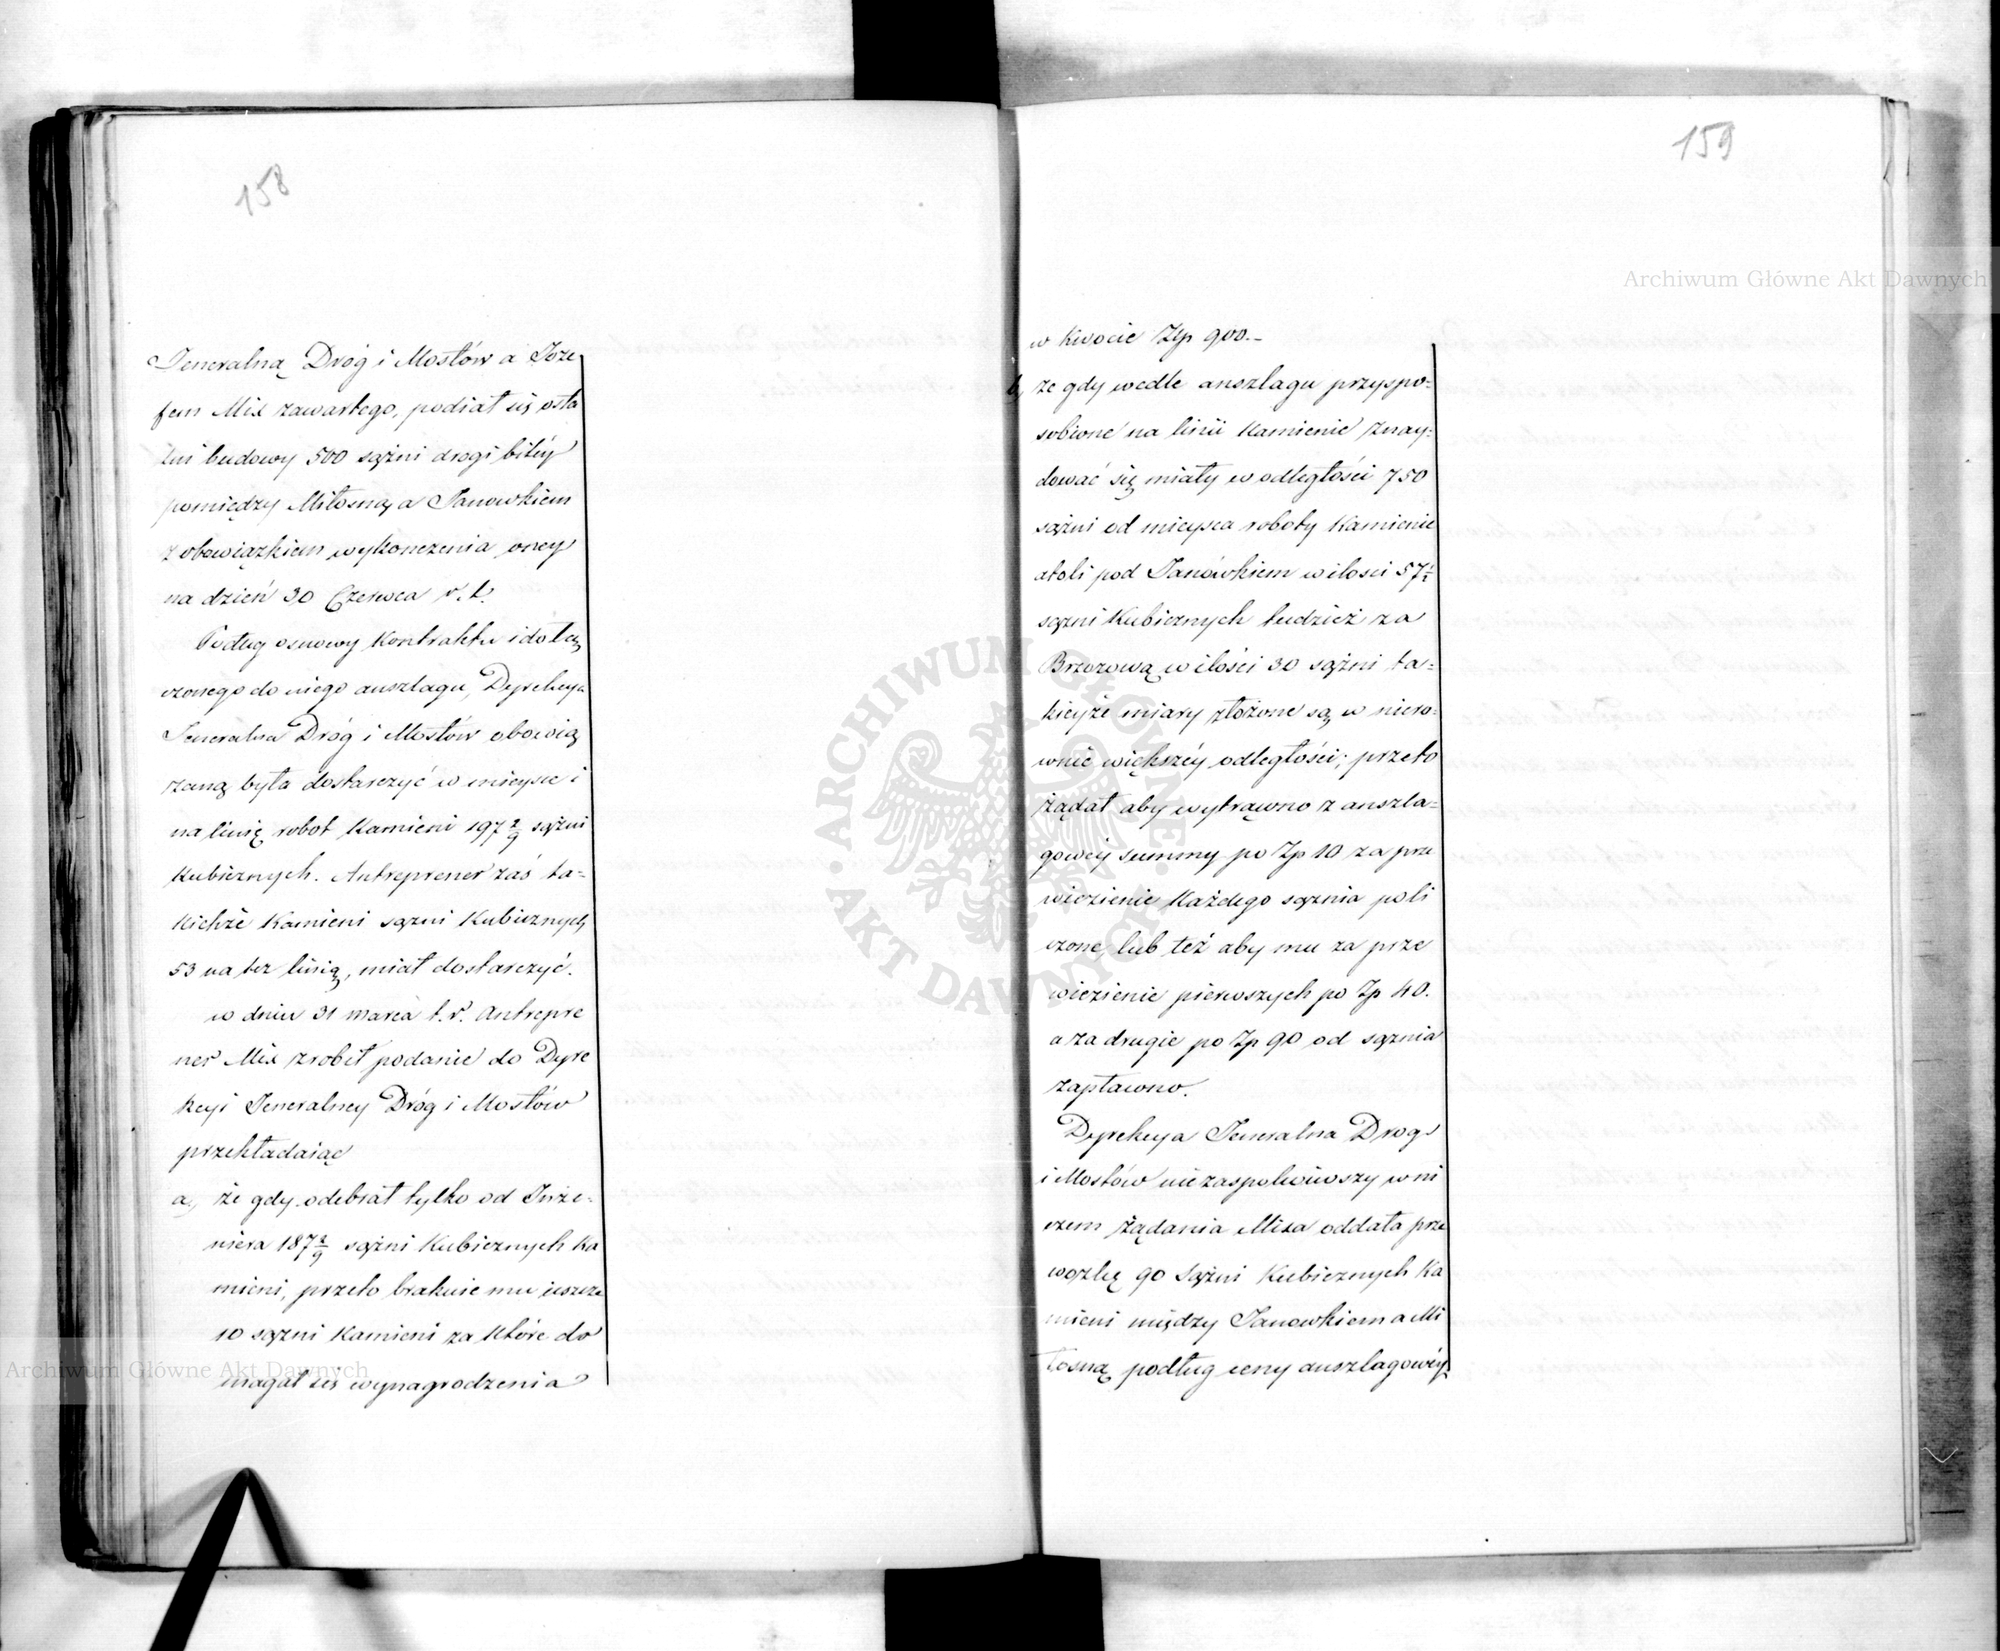 158
Jeneralną Dróg i Mostów a Joze
fem Mix zawartego, podiał się osta
tni budowy 500 sążni drogi bitéy
pomiędzy Miłosną a Janowkiem
z obowiązkiem wykonczenia oney
na dzień 30 Czerwca r. t.
Podług osnowy Kontraktu i dołą
czonego do niego anszlagu, Dyrekcya
Jeneralna Dróg i Mostów obowią
zaną była dostarczyć w mieysce i
na linię robot Kamieni 197 2/9 sążni
Kubicznych. Antreprener zaś ta-
kichże Kamieni sążni Kubicznych
53 na też linią, miał dostarczyć.
w dniu 31 marca t. r. Antrepre
ner Mix zrobił podanie do Dyre
kcyi Jeneralney Dróg i Mostów
przekładaiąc
a, że gdy odebrał tylko od Inże-
niera 187 2/9 sążni Kubicznych Ka
mieni, przeto brakuie mu ieszcze
10 sążni Kamieni za które do
magał się wynagrodzenia
159
w Kwocie Złp 900.-
b, że gdy wedle anszlagu przyspo=
sobione na linii Kamienie znay=
dować się miały w odległości 750
sążni od mieysca roboty Kamienie
atoli pod Janówkiem w ilosci 57
sążni Kubicznych tudzież za
Brzozową w ilości 30 sążni ta=
kieyże miary złożone są w niero=
wnie większéy odległości; przeto
żądał aby wytrąwno z anszla=
gowéy summy po Zp 10 za prze
wiezienie Każdego sążnia poli
czone, lub też aby mu za prze
wiezienie pierwszych po Zp 40.
a za drugie po Zp 90 od sążnia
zapłacono.
Dyrekcya Jeneralna Drog
i Mostów niezaspokoiwszy w ni
czem żądania Mixa oddała prze
wózkę 90 Sążni Kubicznych Ka
mieni między Janowkiem a Mi
łosną podług ceny anszlagowéy
Archiwum Główne Akt Dawnych
Archiwum Główne Akt Dawnych
ARCHIWUM GŁÓWNE · AKT DAWNYCH ·